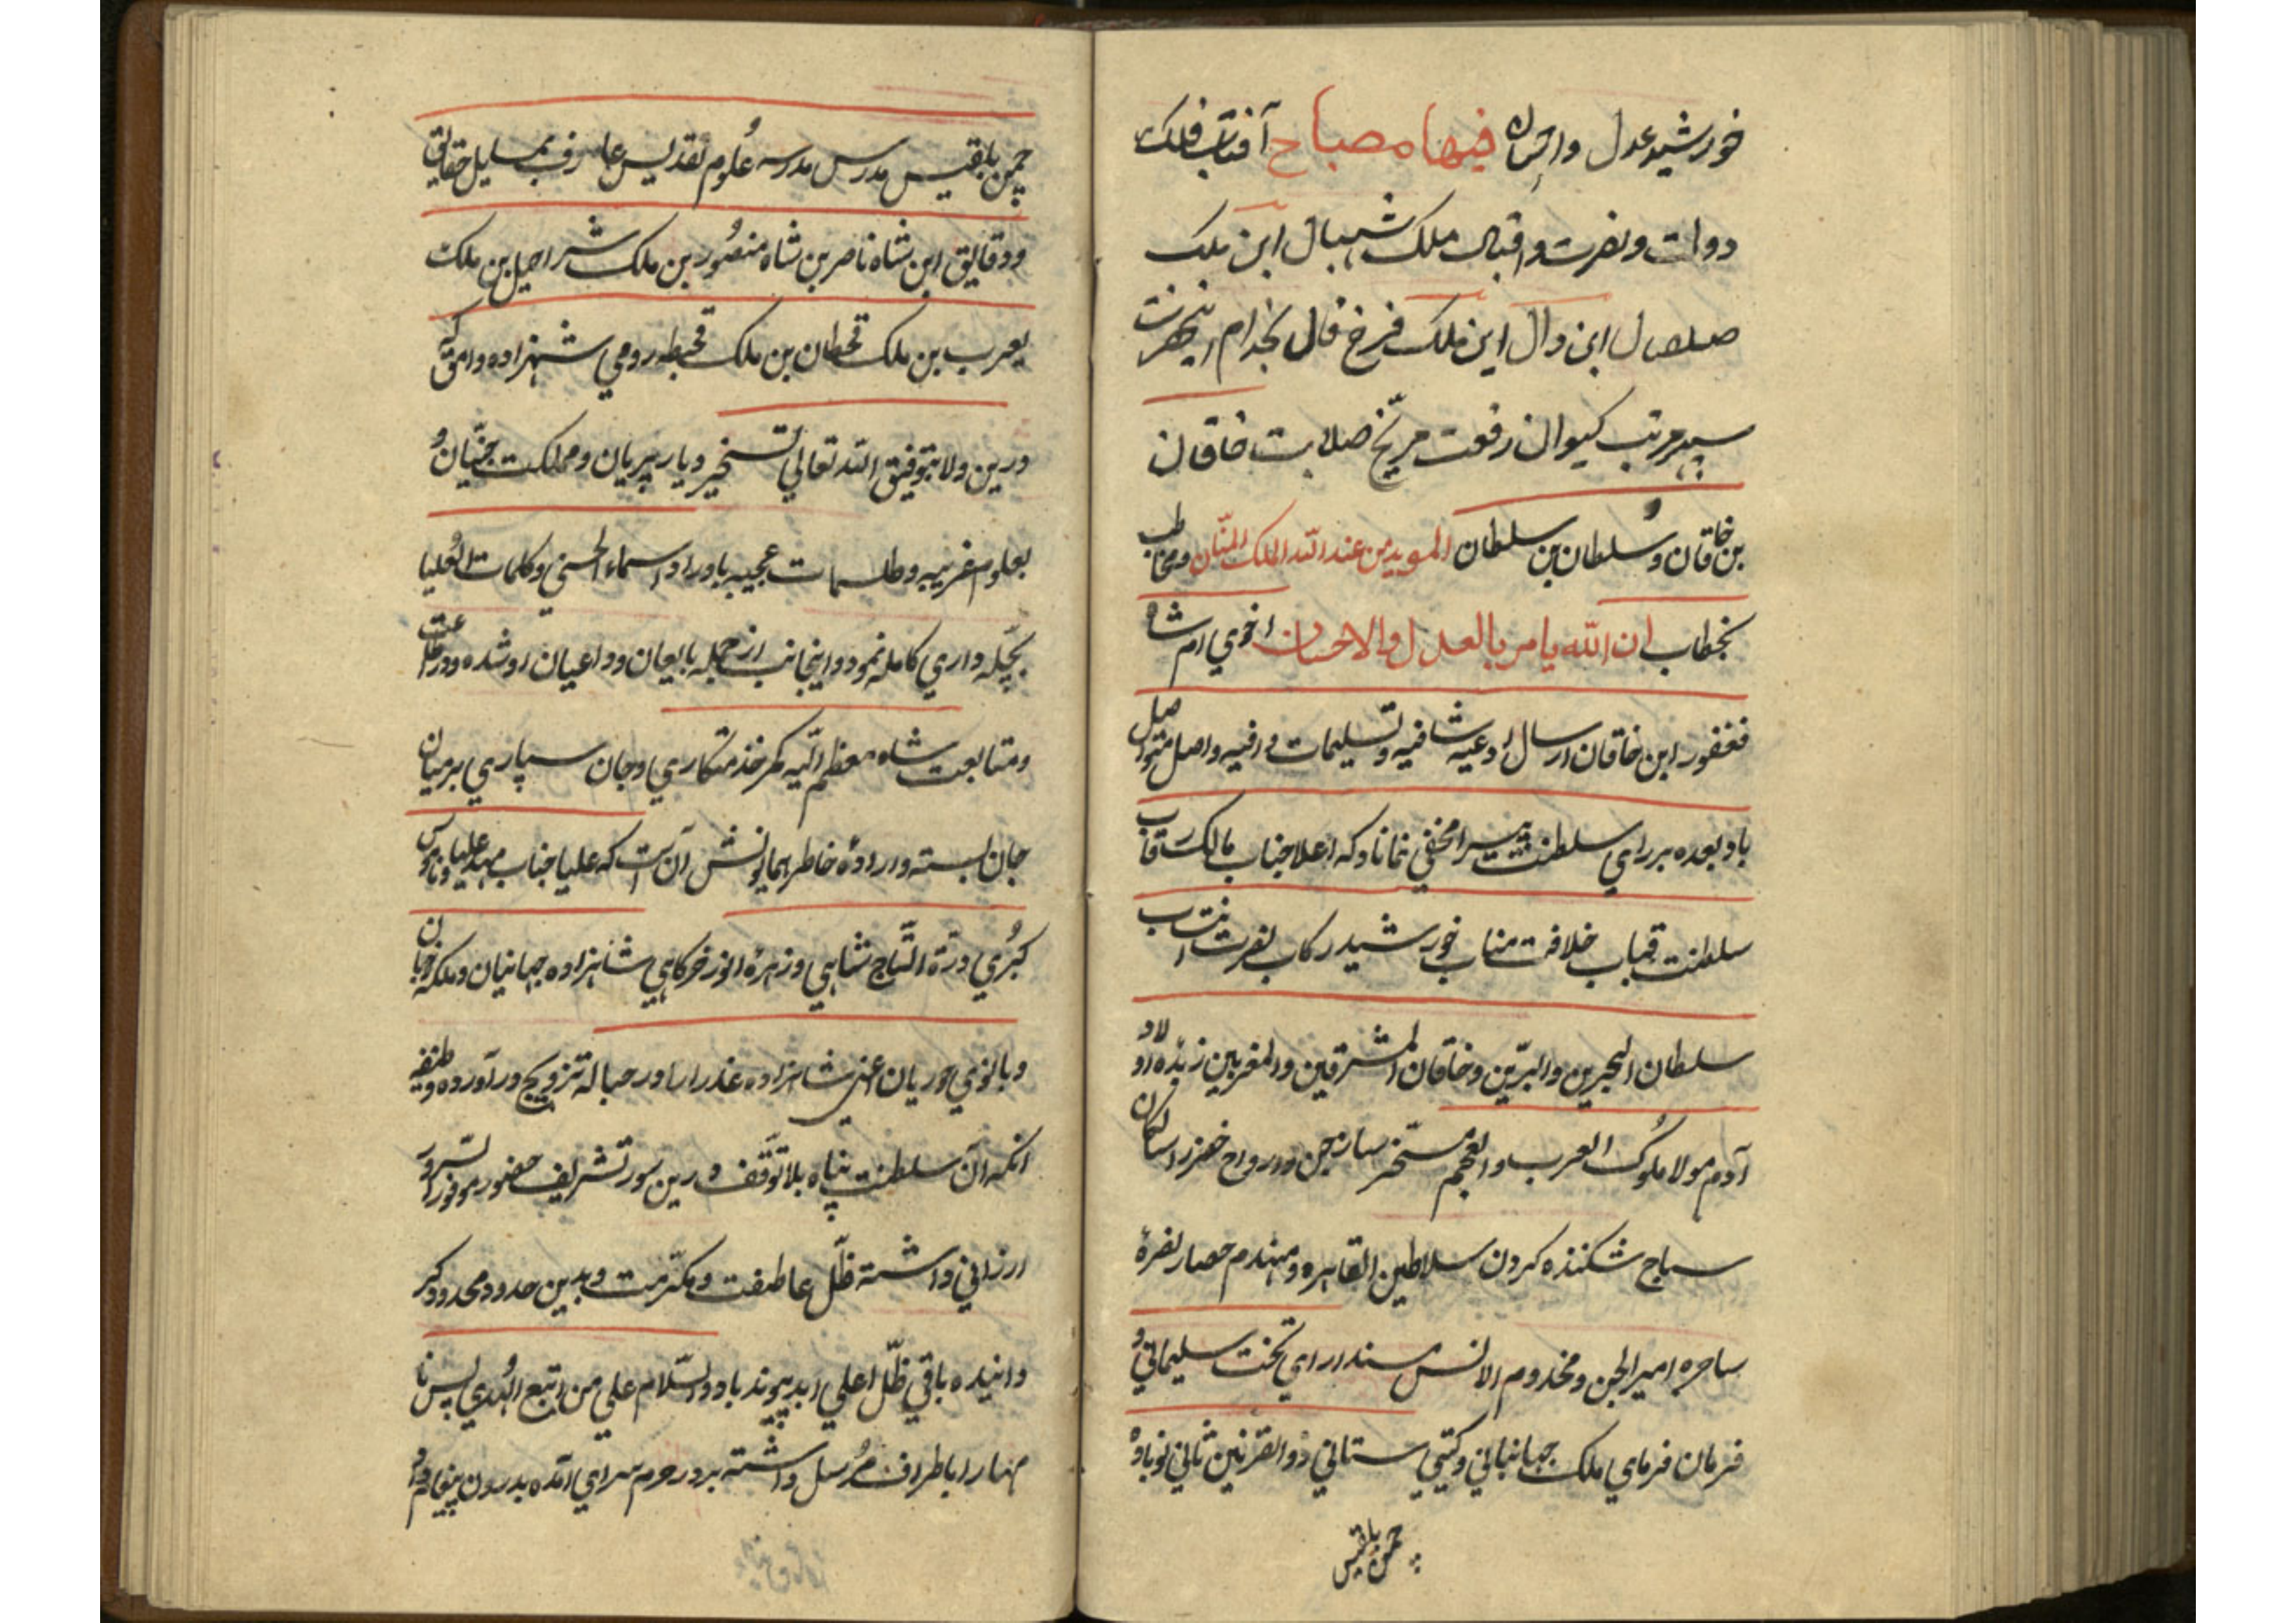 خورشید عدل و احسان فیها مصباح آفتاب فلک
دولت و نصرت و اقبال ملک شهبال ابن ملک
صلصال ابن دال این ملک فرخ فال بخدام
سپهر مرتبت کیوان رفعت مریخ صلابت خاقان
بن خاقان و سلطان بن سلطان الموید من عند الله الملک المنّان و مخاطب
بخطاب ان الله یامر بالعدل والاحسان اخوی ام شاه
فغفور ابن خاقان ارسال ادعیه شافیه و تسلیمات وافیه واصل و متواصل
باد بعده بر رای سلطنت پیرا مخفی نماناد که اعلا جناب مالک رقاب
سلطنت قباب خلافت مناب خورشید رکاب نصرت انتساب
سلطان البحرین والبرّین و خاقان المشرقین والمغربین زبده اولاد
آدم مولا ملوک العرب والعجم مسخر ساز جن و ارواح
سباح شکننده کردن سلاطین القاهره و مهندم حصار نصره
ساحره امیر الجن و مخدوم الانس مسند ارای تخت سلیمانی و
فرمان فرمای ملک جهانبانی و کیتی ستانی ذو القرنین ثانی نوباوه
چمن بلقیس
چمن بلقیس مدرس مدرسه علوم تقدیس عارف بمسایل حقایق
و دقایق ابن شاه ناصر بن شاه منصور بن ملک شراحیل بن ملک
یعرب بن ملک قحطان بن ملک قحبطه رومی شهزاده وامق که
درین ولا بتوفیق الله تعالی تسخیر دیار پریان و مملکت جنّیان و
بعلوم غریبه و طلسمات عجیبه باوراد اسماء الحسنی و کلمات العلیا
بچلّه داری کامله نمود و اینجانب از جمله تابعان و داعیان او شده و در طاعت
و متابعت شاه معظم الیه کمر خذمتکاری و جان سپاری بر میان
جان بسته و اراده خاطر همایونش آن است که علیا جناب مهد علیا و ناموس
کبری درّة التاج شاهی و زهره انور خرکاهی شاهزاده جهانیان و ملکه خوبان
و بانوی حوریان اعنی شاهزاده عذرا را در حباله تزویج در آورده وظیفه
انکه آن سلطنت پناه بلا توقّف درین سور تشریف حضور موفور السرور
ارزانی داشته ظلّ عاطفت و مکرّمت و بدین حدود محدود کر
دانیده باقی ظلّ اعلی ابد پیوند باد والسّلام علی من اتبع الهدی پس نا
مها را باطراف مرسل داشته بر در حرم سرای آمده بدرون پیغام داد